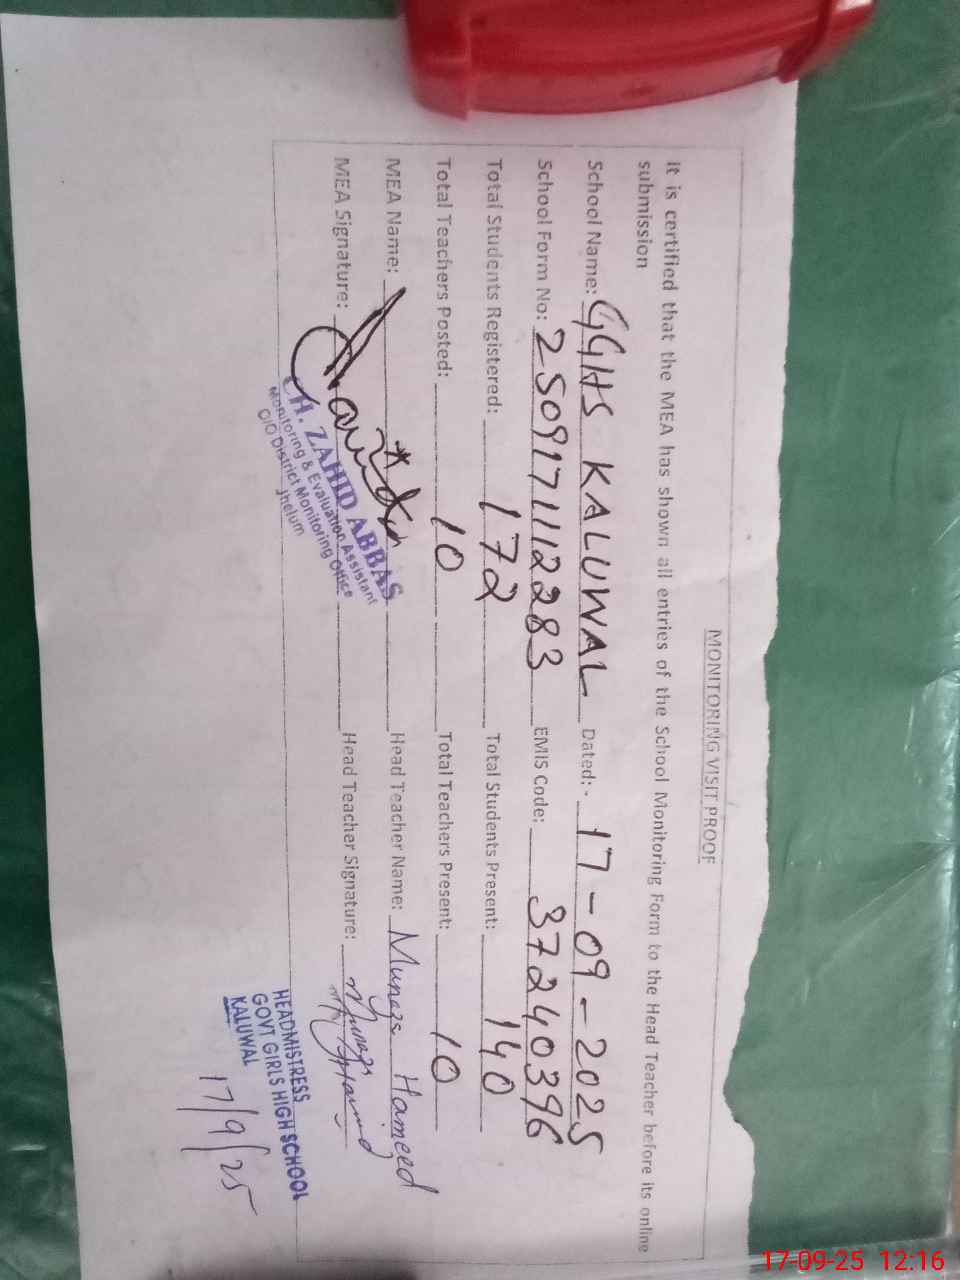 MONITORING VISIT PROOF
It is certified that the MEA has shown all entries of the School Monitoring Form to the Head Teacher before its online
submission
School Name: GGHS KALUWAL Dated:- 17-09-2025
School Form No: 2509171112283 EMIS Code: 37240396
Total Students Registered: 172 Total Students Present: 140
Total Teachers Posted: 10 Total Teachers Present: 10
MEA Name: Head Teacher Name: Munaza Hameed
MEA Signature: Head Teacher Signature:
CH. ZAHID ABBAS
Monitoring & Evaluation Assistant
O/O District Monitoring Office
Jhelum
HEADMISTRESS
GOVT GIRLS HIGH SCHOOL
KALUWAL
17/9/25
17-09-25 12:16